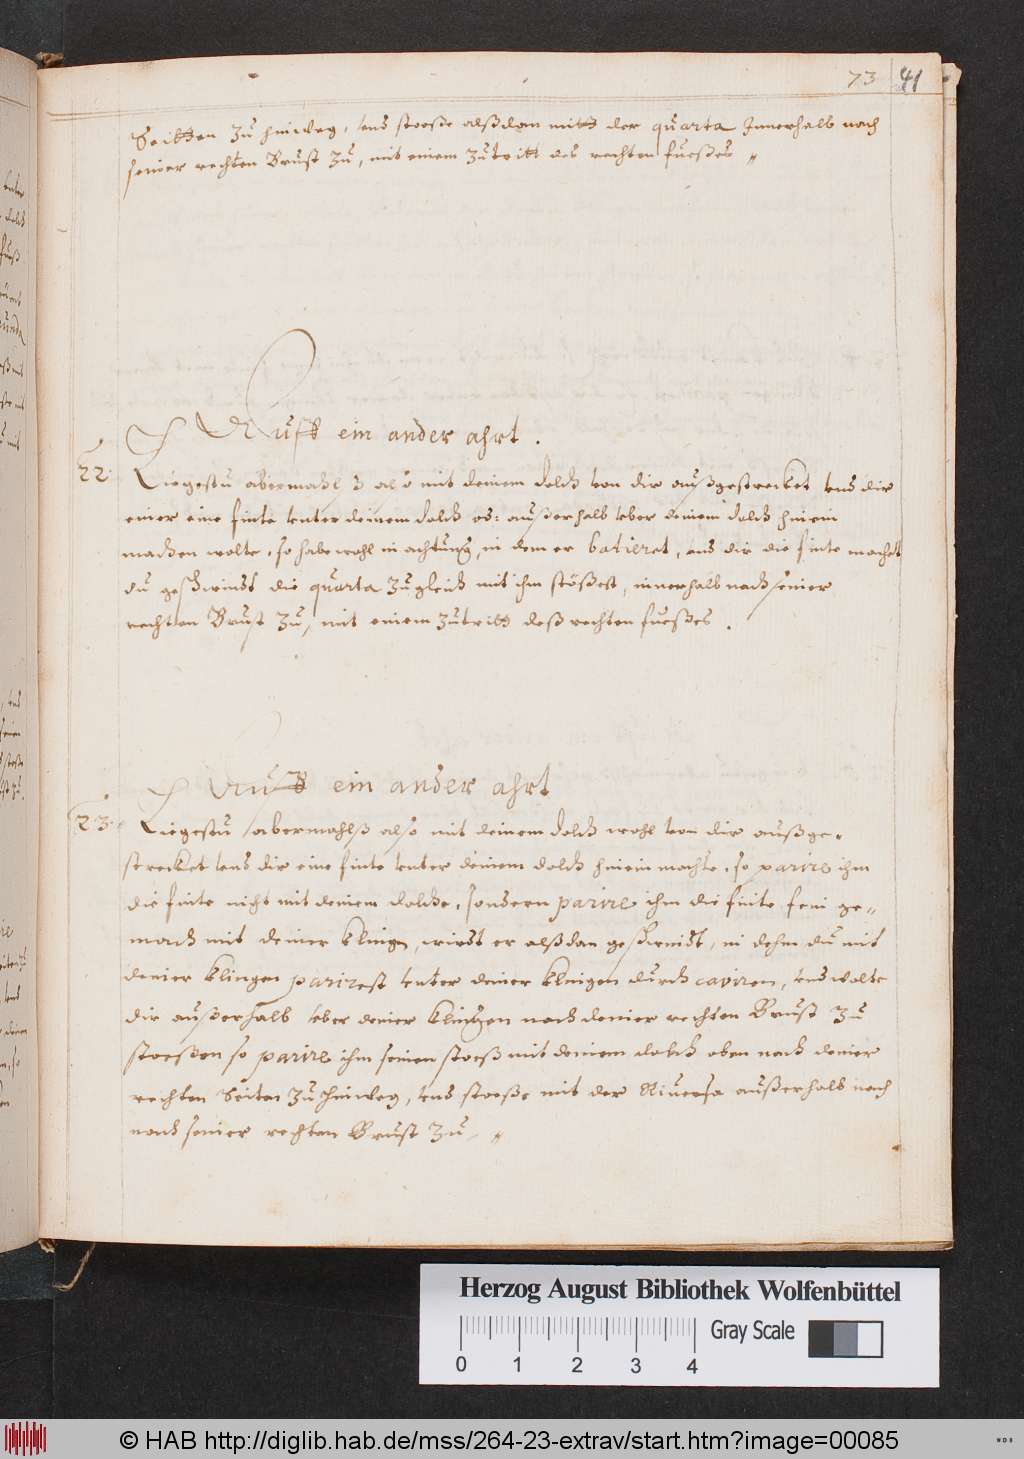 73 41
Seitten zu hinweg, und stoeße alßdan mitt der quarta Innerhalb nach
seiner rechten Brust zu, mit einem zutritt des rechten fueßes //
Auff ein ander ahrt.
22. Liegestu abermahlß also mit deinem dolch von dir außgestrecket und dir
einer eine finte unter deinem dolch od: außerhalb uber deinem dolch hinein
machen wolte, so habe wohl in achtung, in dem er batieret, und dir die finte machet
du geschwindt die quarta zugleich mit ihm stößest, innerhalb nach seiner
rechten Brust zu, mit einem zutritt deß rechten fueßes.
Auff ein ander ahrt
23. Liegestu abermahlß also mit deinem dolch wohl von dir außge-
strecket und dir eine finte unter deinem dolch hinein machte, so parire ihm
die finte nicht mit deinem dolche, sondern parire ihm die finte fein ge-
mach mit deiner klingen, wirdt er alßdan geschwindt, in dehm du mit
deiner klingen parirest unter deiner klingen durch caviren, und wolte
dir außerhalb uber deiner klingen nach deiner rechten Brust zu
stoeßen so parire ihm seinen stoeß mit deinem dolch oben nach deiner
rechten Seiten zu hinweg, und stoeße mit der Riversa außerhalb nach
nach seiner rechten Brust zu, //
Herzog August Bibliothek Wolfenbüttel
Gray Scale
0 1 2 3 4
© HAB http://diglib.hab.de/mss/264-23-extrav/start.htm?image=00085